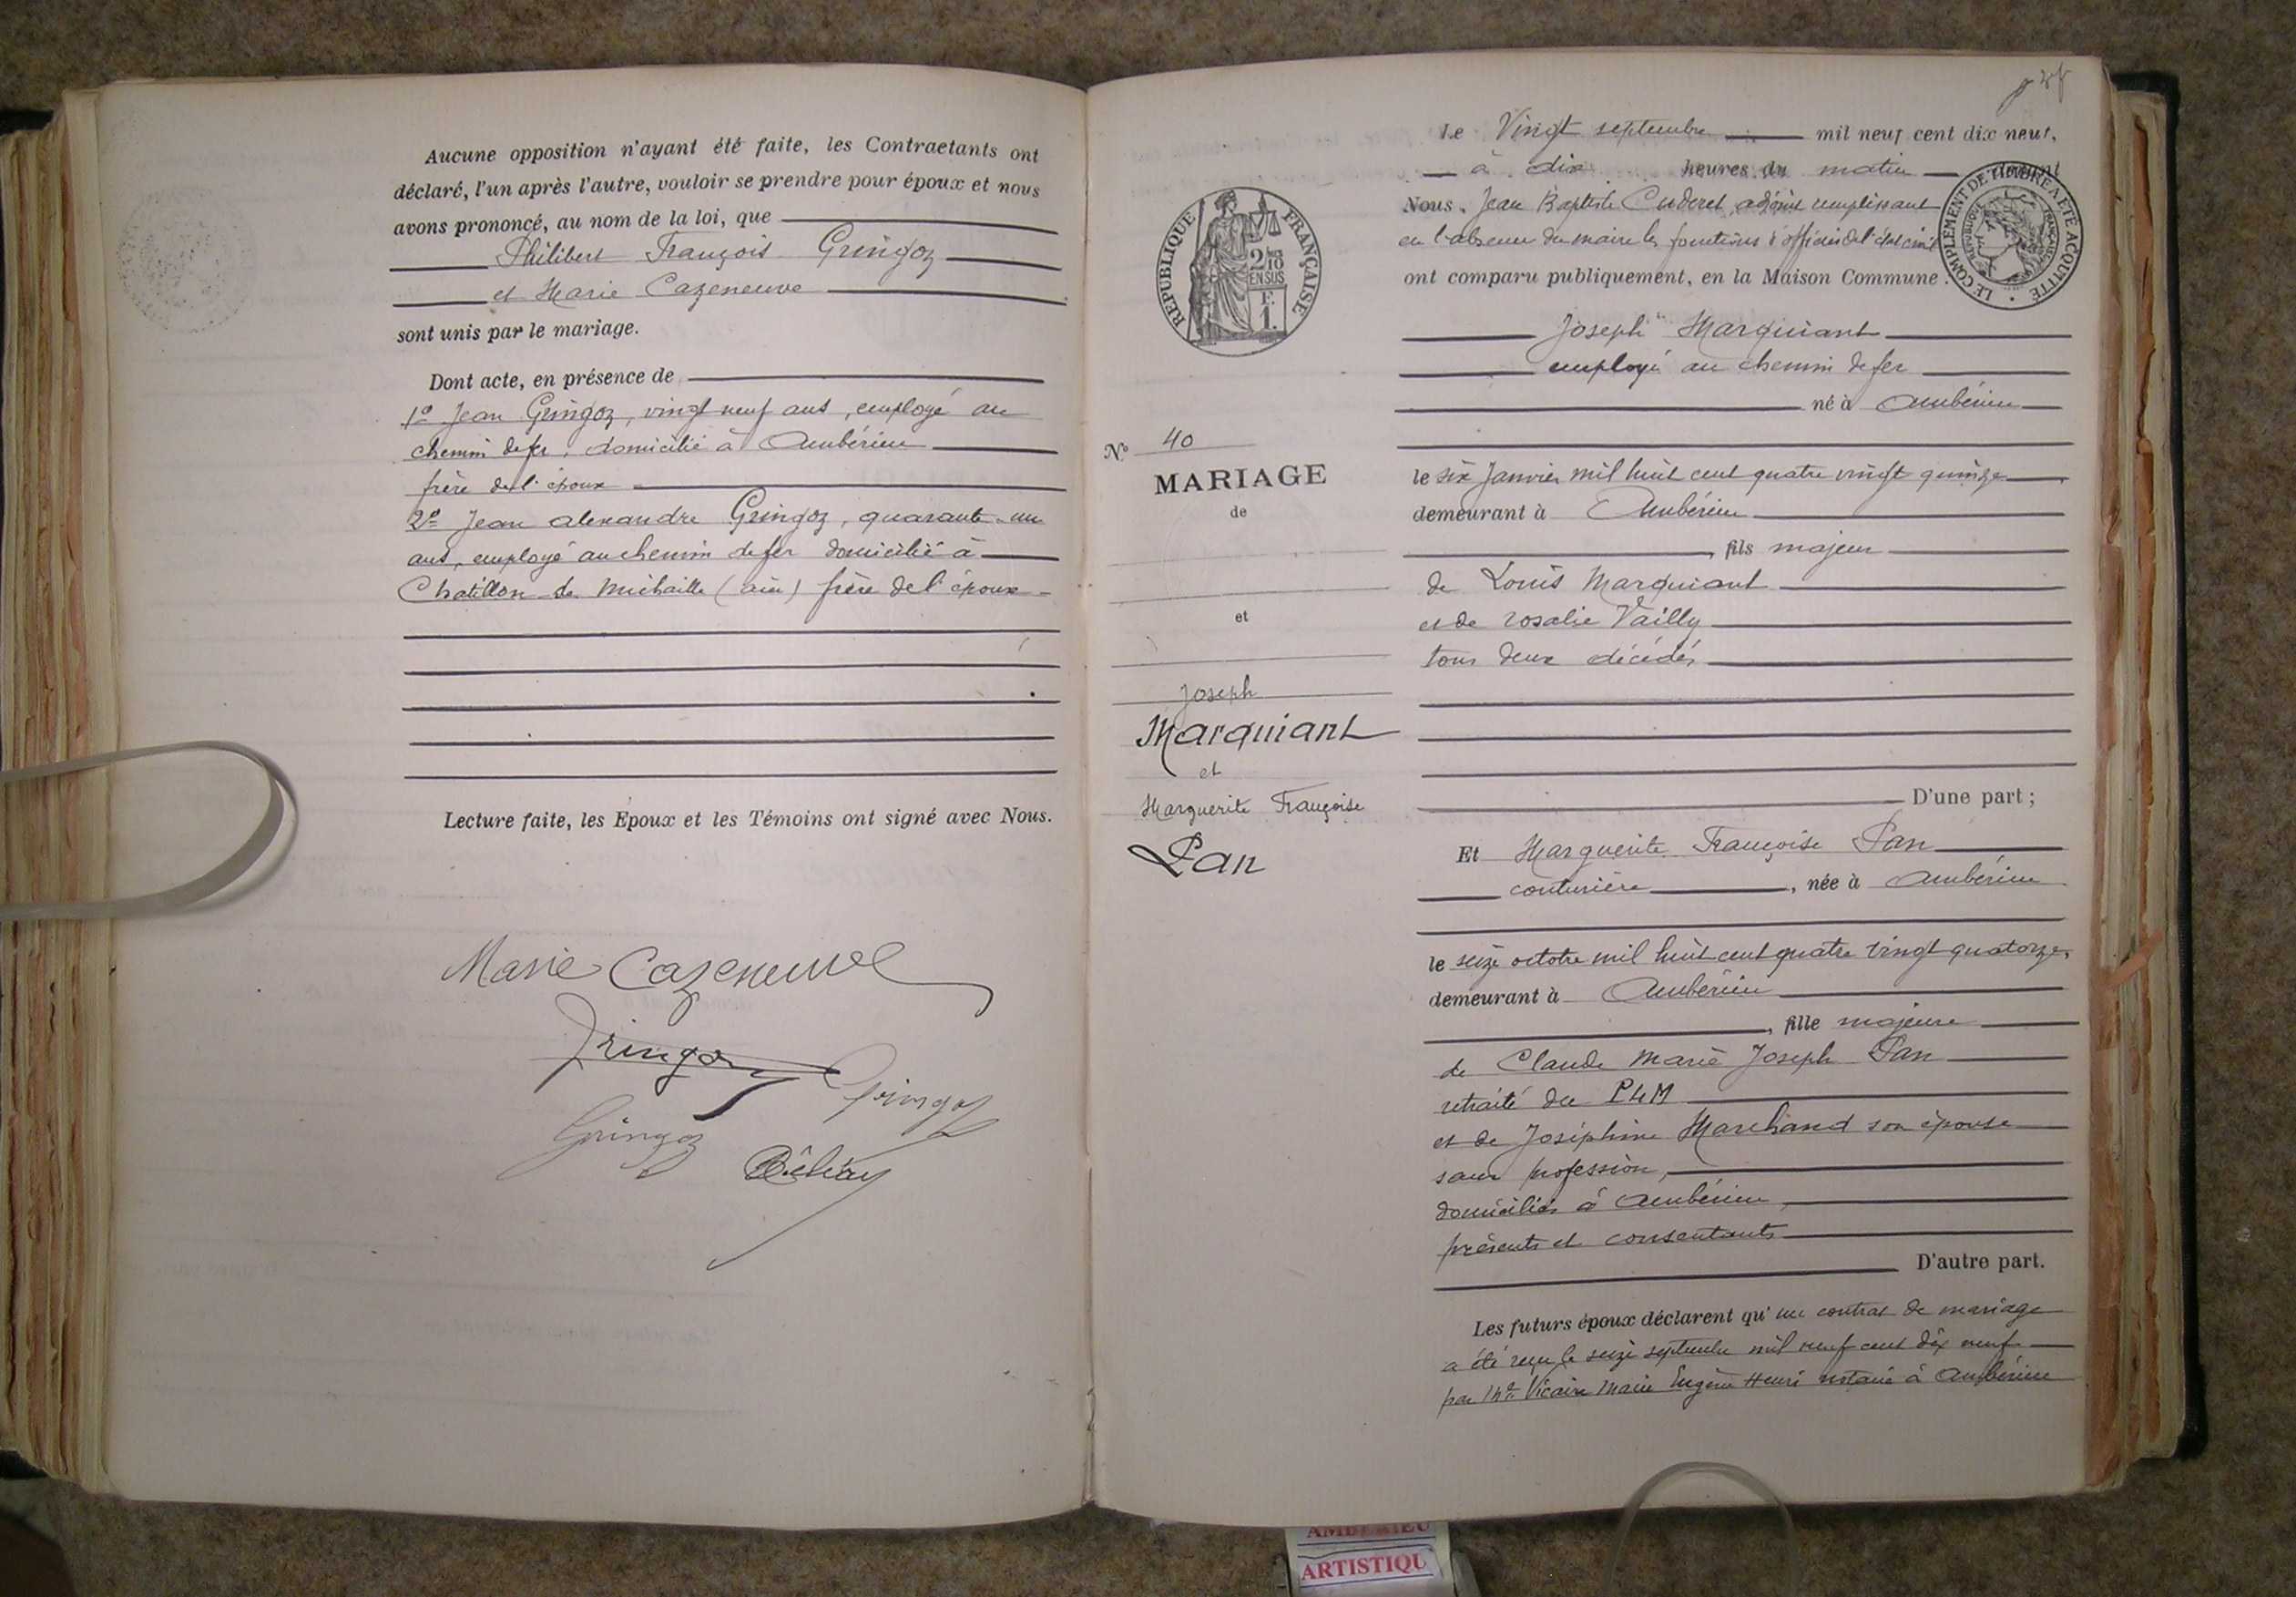 Aucune opposition n'ayant été faite, les Contractants ont
déclaré, l'un après l'autre, vouloir se prendre pour époux et nous
avons prononcé, au nom de la loi, que
Philibert François Gringoz
et Marie Cazeneuve
sont unis par le mariage.
Dont acte, en présence de
1º Jean Gringoz, vingt neuf ans, employé au
chemin de fer, domicilié à Ambérieu
frère de l'époux
2º Jean alexandre Gringoz, quarante-un
ans, employé au chemin de fer domicilié à
Chatillon de Michaille (ain) frère de l'époux
Lecture faite, les Époux et les Témoins ont signé avec Nous.
Marie Cazeneuve
Gringoz
Gringoz
Gringoz
RÉPUBLIQUE FRANÇAISE
2/10
EN SUS
F.
1.
Nº 40
MARIAGE
de
et
Joseph
Marquiant
et
Marguerite Françoise
Pan
Le Vingt septembre mil neuf cent dix neuf,
à dix heures du matin devant
Nous, Jean Baptiste Cuderet, adjoint remplissant
en l'absence du maire les fonctions d'officier de l'état civil
ont comparu publiquement, en la Maison Commune
LE COMPLÉMENT DE TIMBRE A ÉTÉ ACQUITTÉ
RÉPUBLIQUE FRANÇAISE
Joseph Marquiant
employé au chemin de fer
né à Ambérieu
le six Janvier mil huit cent quatre vingt quinze
demeurant à Ambérieu
, fils majeur
de Louis Marquiant
et de rosalie Vailly
tous deux décédés
D'une part;
Et Marguerite Françoise Pan
couturière, née à Ambérieu
le seize octobre mil huit cent quatre vingt quatorze,
demeurant à Ambérieu
, fille majeure
de Claude Marie Joseph Pan
retraité du PLM
et de Joséphine Marchand son épouse
sans profession,
domiciliés à Ambérieu,
présents et consentants
D'autre part.
Les futurs époux déclarent qu'un contrat de mariage
a été reçu le seize septembre mil neuf cent dix neuf
par Me Vicaire Marie Eugène Henri notaire à Ambérieu
AMBERIEU
ARTISTIQU